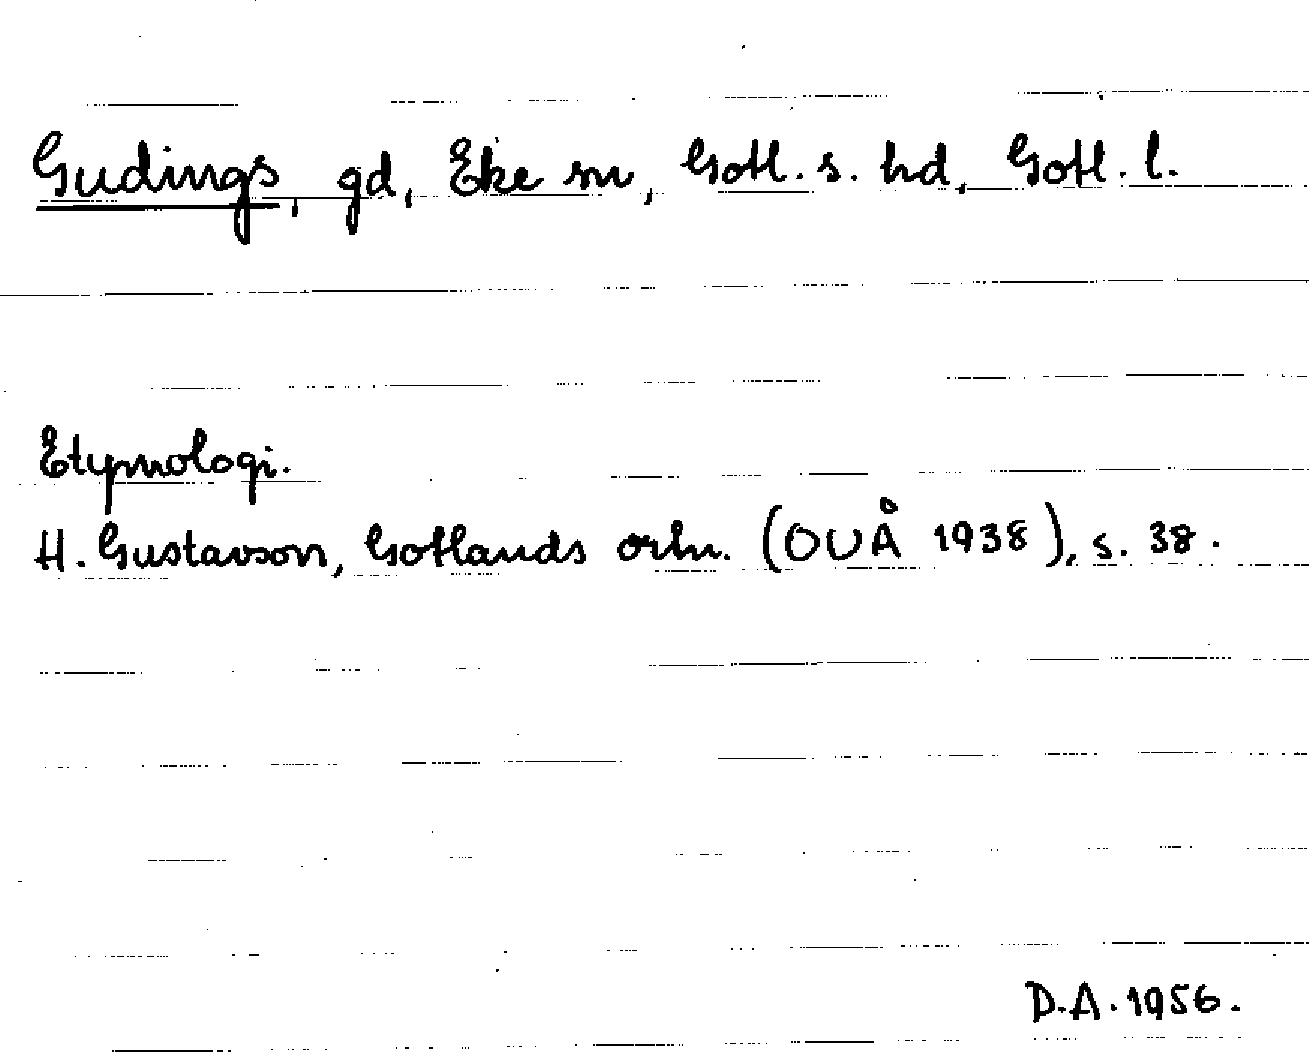 Gudings, gd, Eke sn, Gotl. s. hd, Gotl. l.
Etymologi.
H. Gustavson, Gotlands ortn. (OUÅ 1938), s. 38.
D.A. 1956.